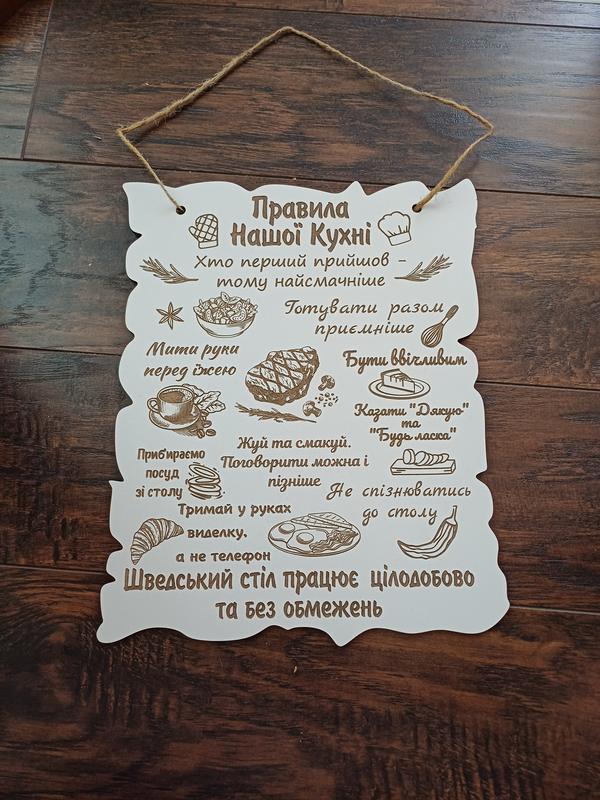 Правила
Нашої Кухні
Хто перший прийшов -
тому найсмачніше
Готувати разом
приємніше
Мити руки
перед їжею
Бути ввічливим
Казати "Дякую"
та
"Будь ласка"
Жуй та смакуй.
Поговорити можна і
пізніше
Приб'ираємо
посуд
зі столу
Не спізнюватись
до столу
Тримай у руках
виделку,
а не телефон
Шведський стіл працює цілодобово
та без обмежень